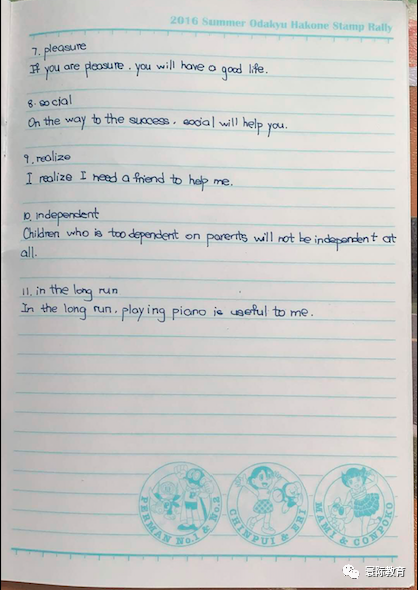 2016 Summer Odakyu Hakone Stamp Rally
7. pleasure
If you are pleasure, you will have a good life.
8. social
On the way to the success, social will help you.
9. realize
I realize I need a friend to help me.
10. independent
Children who is too dependent on parents will not be independent at
all.
11. in the long run
In the long run, playing piano is useful to me.
PERMAN No.1 & No.2
CHINPUI & ERI
MAMI & CONPOKO
寰际教育